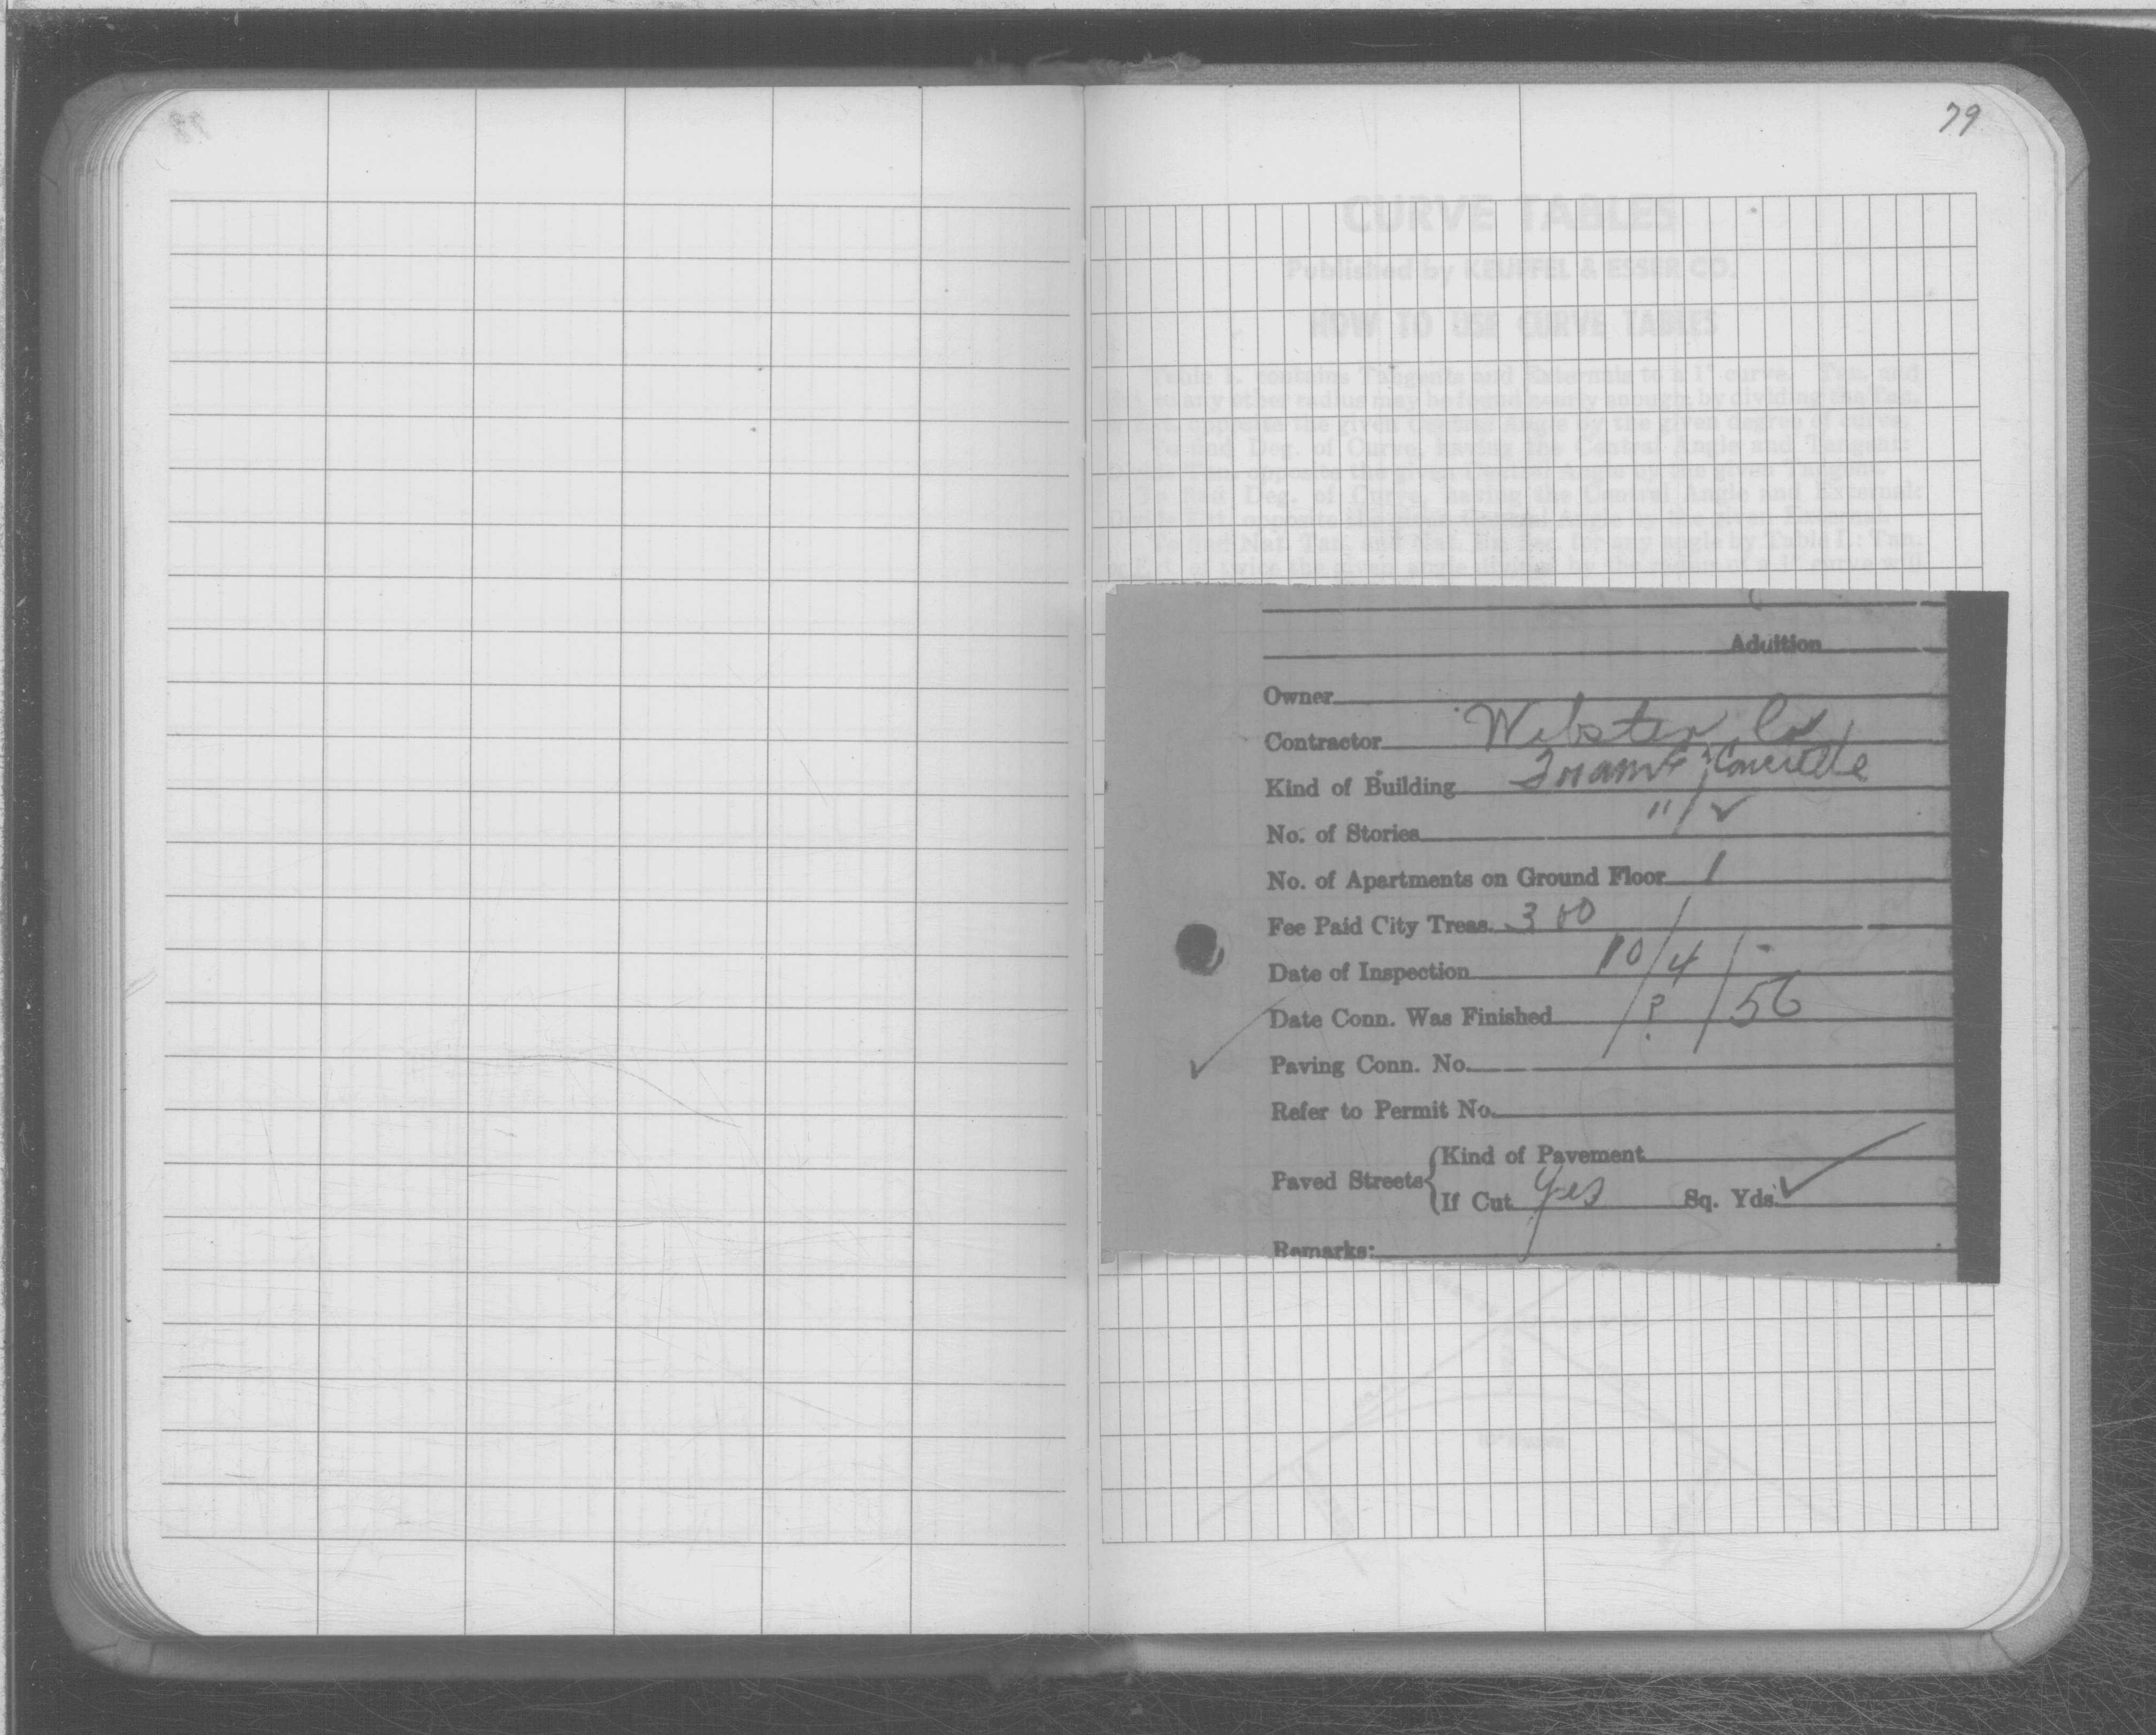 79
CURVE TABLES
Published by KEUFFEL & ESSER CO.
HOW TO USE CURVE TABLES
Table I. contains Tangents and Externals to a 1° curve. Tan. and
any other radius may be found nearly enough, by dividing the Tan.
opposite the given Central Angle by the given degree of curve.
To find Deg. of Curve, having the Central Angle and Tangent:
opposite the given Central Angle by the given Tangent.
To find Deg. of Curve, having the Central Angle and External:
opposite the given Central Angle by the given External.
To find Nat. Tan. and Nat. Ex. Sec. for any angle by Table I.: Tan.
Addition
Owner
Contractor Webster Co
Kind of Building Frame Concrete
No. of Stories " 1 ✓
No. of Apartments on Ground Floor 1
Fee Paid City Treas. 3 00
Date of Inspection 10/4/
Date Conn. Was Finished ? /56
Paving Conn. No.
Refer to Permit No.
Paved Streets { Kind of Pavement
If Cut Yes Sq. Yds. ✓
Remarks: